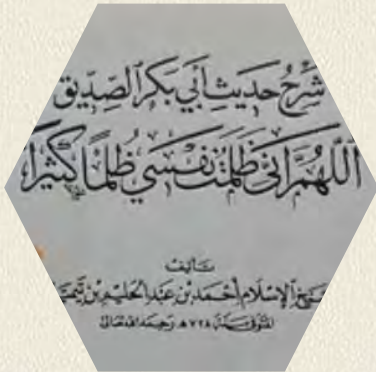 شَرْحُ حَدِيثِ أَبِي بَكْرٍ الصِّدِّيقِ
اللَّهُمَّ إِنِّي ظَلَمْتُ نَفْسِي ظُلْمًا كَثِيرًا
تأليف
شيخ الإسلام أحمد بن عبد الحليم بن تيمية
المتوفى سنة ٧٢٨ هـ رحمه الله تعالى